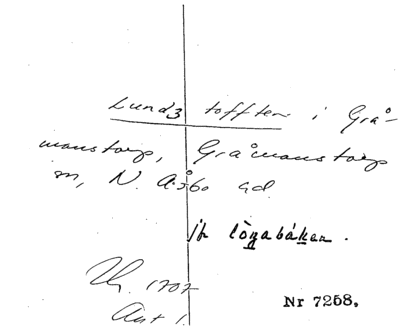 Lunds tofften i Grå-
manstorp, Gråmanstorp
sn, N. Åsbo hd.
jfr lögabákan.
1707
Art 1.
Nr 7258.